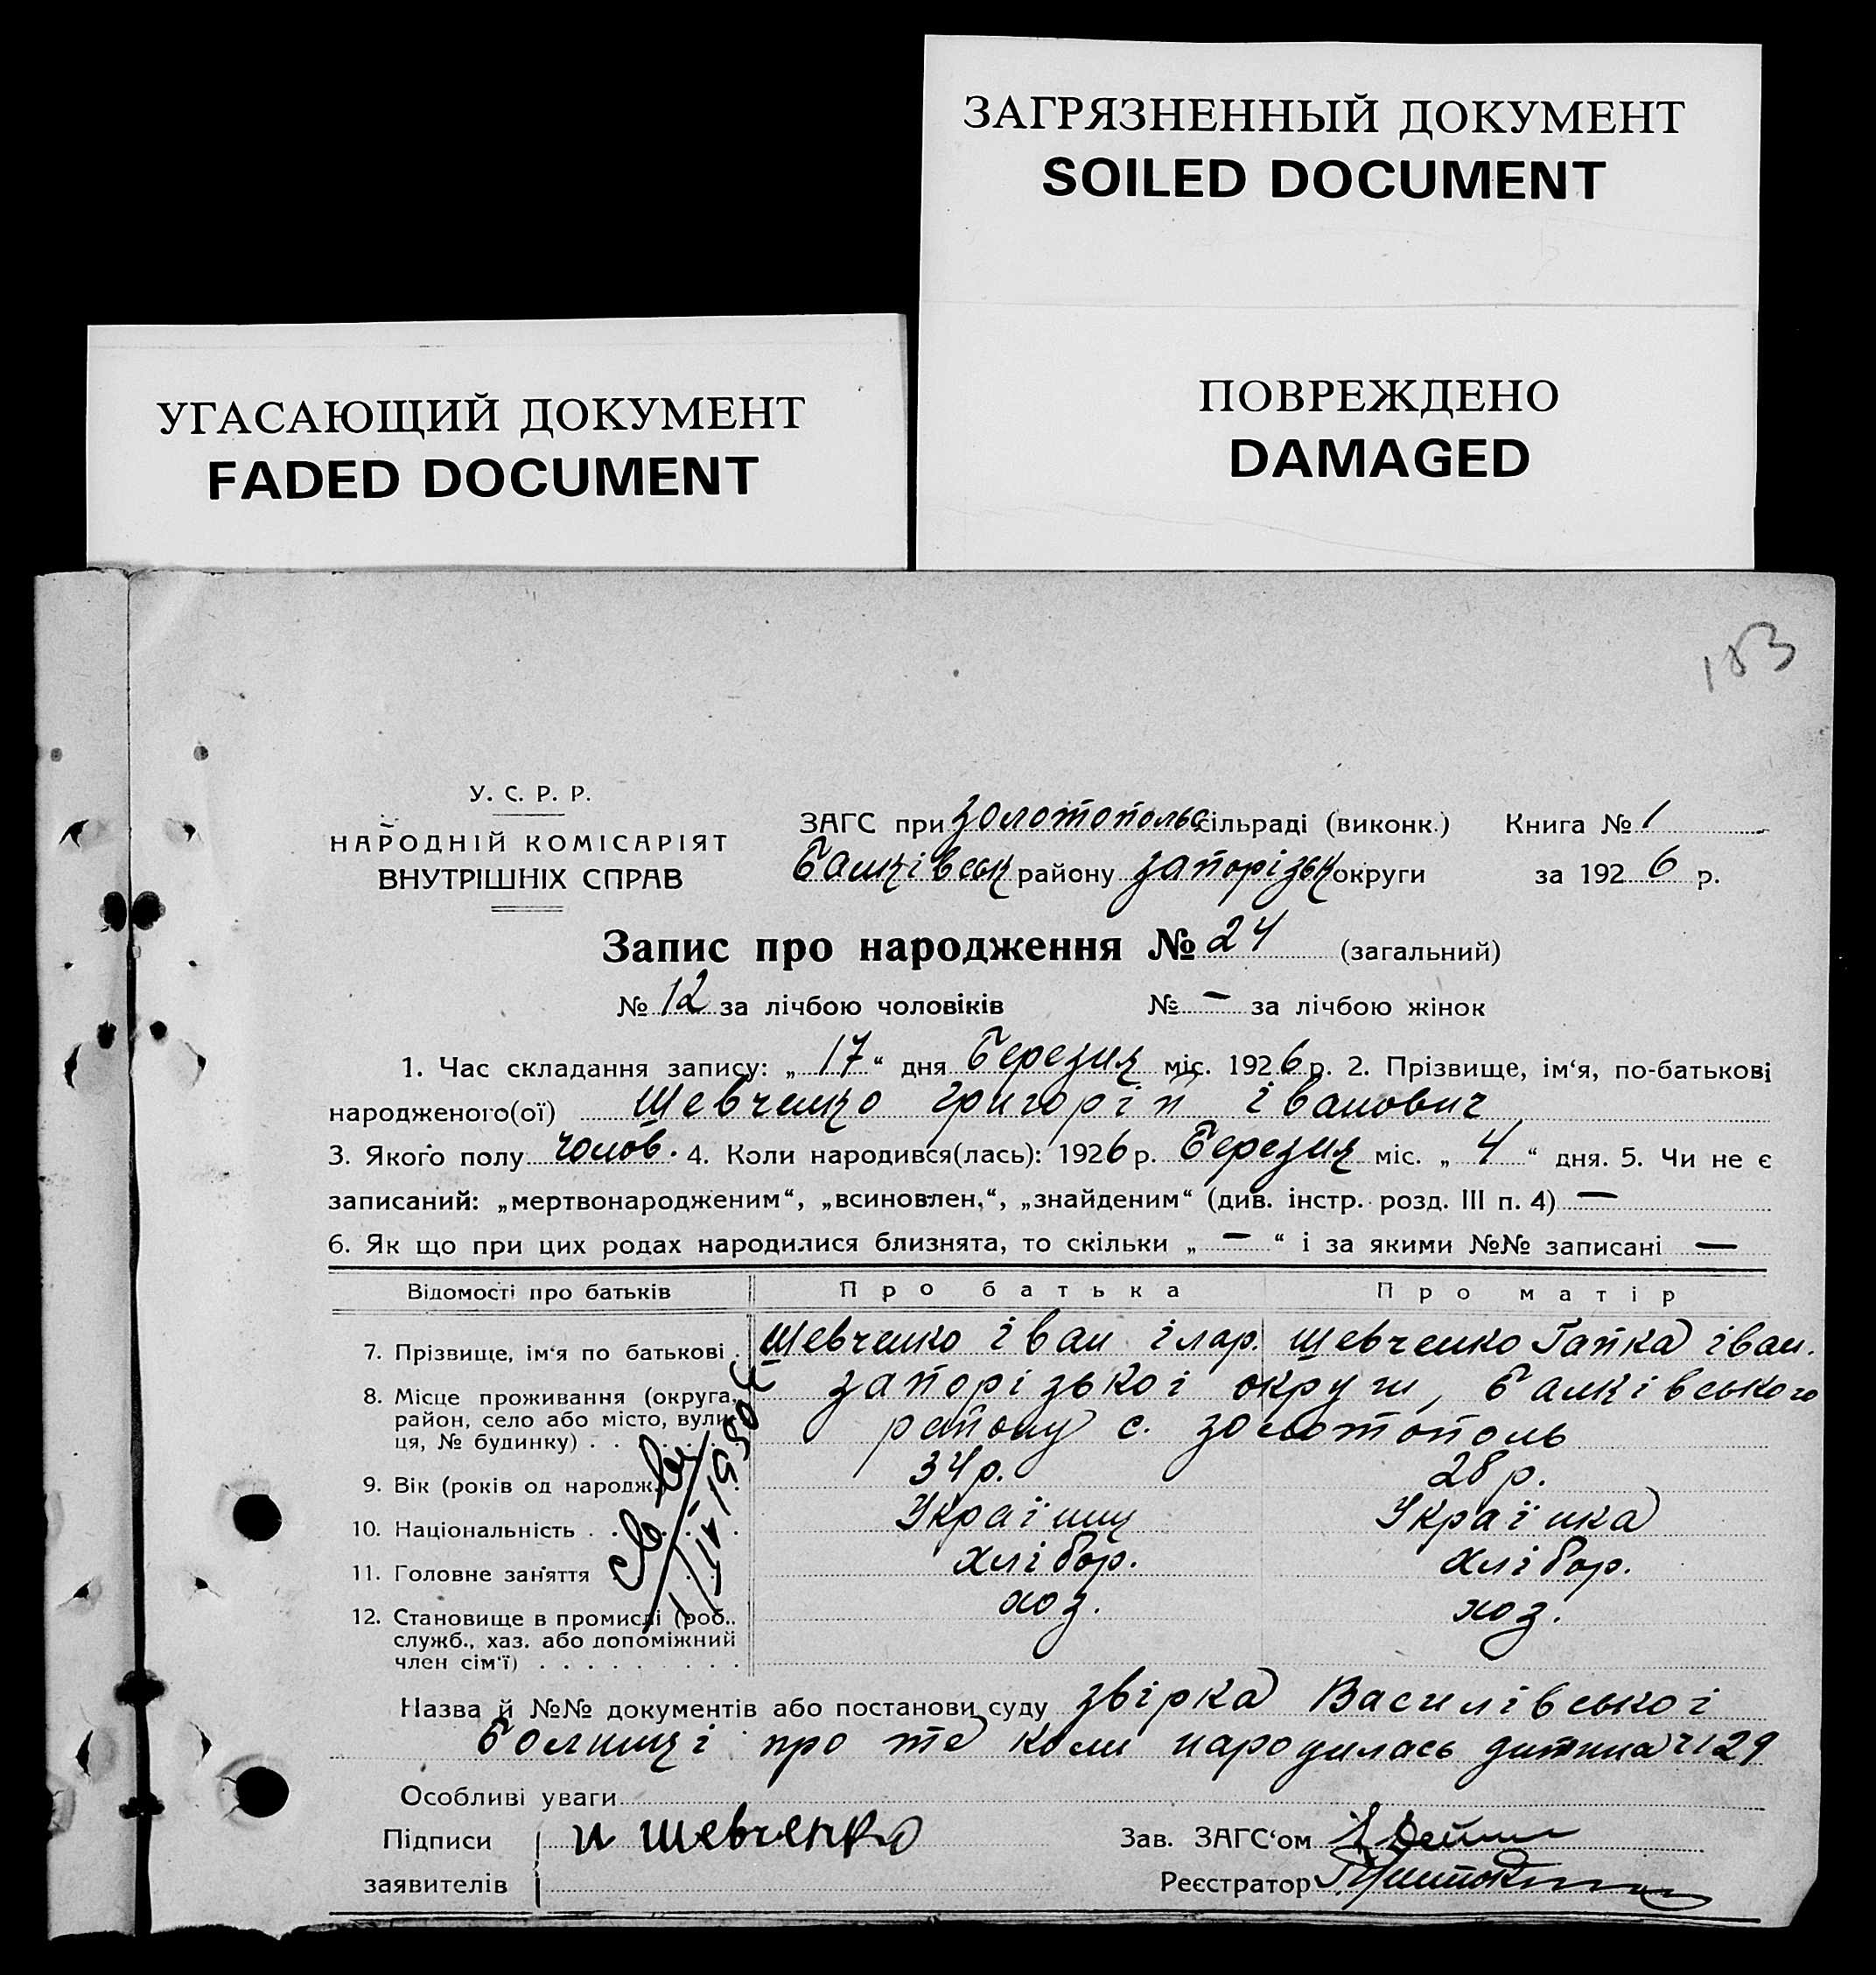 ЗАГРЯЗНЕННЫЙ ДОКУМЕНТ
SOILED DOCUMENT
ПОВРЕЖДЕНО
DAMAGED
УГАСАЮЩИЙ ДОКУМЕНТ
FADED DOCUMENT
183
У. С. Р. Р.
НАРОДНІЙ КОМІСАРІЯТ
ВНУТРІШНІХ СПРАВ
ЗАГС при Золотопольс сільраді (виконк.) Книга № 1
Балківськ району Запорізьк округи за 1926 р.
Запис про народження № 24 (загальний)
№ 12 за лічбою чоловіків № — за лічбою жінок
1. Час складання запису: „ 17 “ дня Березня міс. 1926 р. 2. Прізвище, ім‘я, по-батькові
народженого(ої) Шевченко Григорій Іванович
3. Якого полу чолов. 4. Коли народився(лась): 1926 р. Березня міс. „ 4 “ дня. 5. Чи не є
записаний: „мертвонародженим“, „всиновлен,“, „знайденим“ (див. інстр. розд. III п. 4) —
6. Як що при цих родах народилися близнята, то скільки „ — “ і за якими №№ записані —
Відомості про батьків Про батька Про матір
7. Прізвище, ім‘я по батькові . Шевченко Іван Ілар. Шевченко Гапка Іван.
8. Місце проживання (округа, Запорізької округи, Балківського
район, село або місто, вули- району с. Золотополь
ця, № будинку) . .
9. Вік (років од народж. 34 р. 28 р.
10. Національність . . Українц Українка
11. Головне заняття . хлібор. хлібор.
12. Становище в промислі (роб., хоз. хоз.
служб., хаз. або допоміжний
член сім‘ї) . . . . . . . . .
Назва й №№ документів або постанови суду звірка Василівської
болниці про те коли народилась дитина ч 129
Особливі уваги
Підписи И Шевченко Зав. ЗАГС‘ом
заявителів Реєстратор